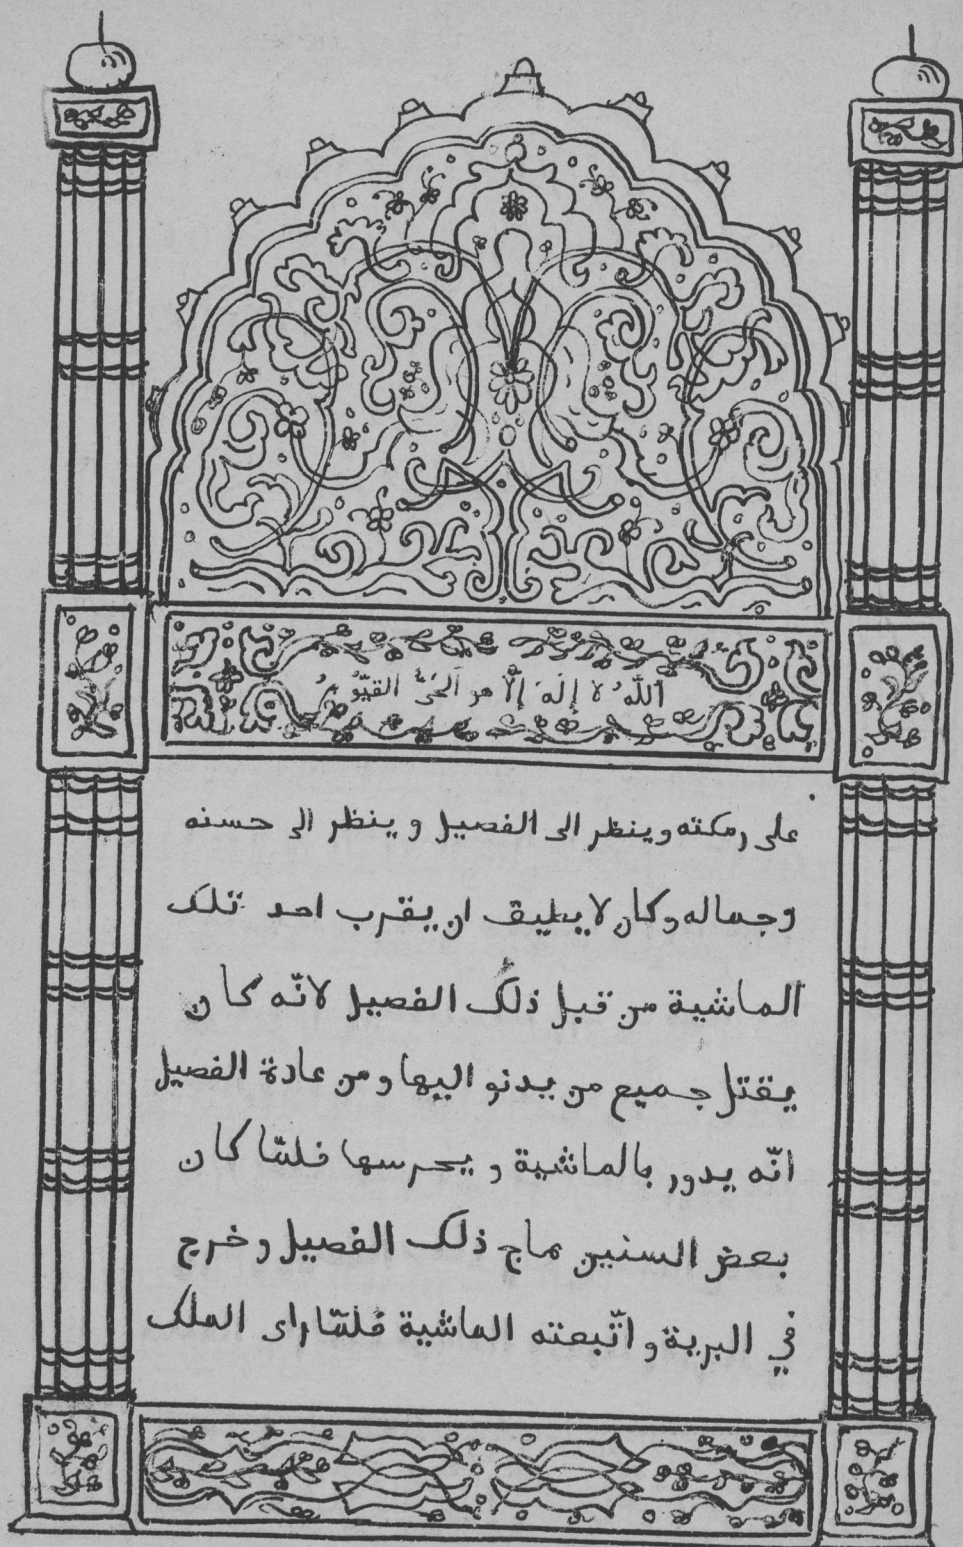 اَللّٰهُ لَا إِلٰهَ إِلَّا هو اَلحَىُّ القَيُّومُ
على رمكته وينظر الى الفصيل وينظر الى حسنه
وجماله وكان لا يطيق ان يقرب احد تلك
الماشية من قبل ذلك الفصيل لانّه كان
يقتل جميع من يدنو اليها ومن عادة الفصيل
انّه يدور بالماشية ويحرسها فلمّا كان
بعض السنين هاج ذلك الفصيل وخرج
في البرية واتّبعته الماشية فلمّا راى الملك